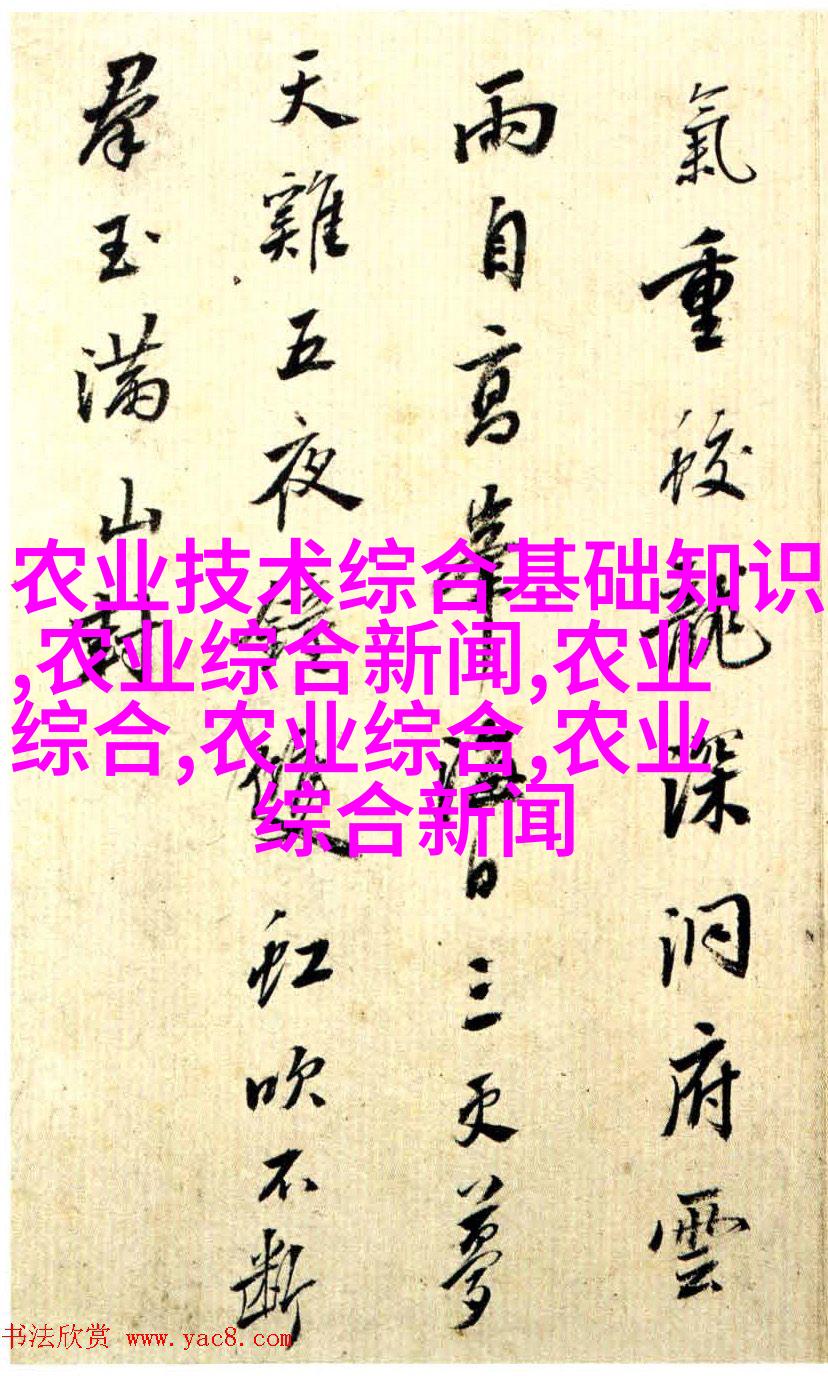 氣重蛟龍深洞府雲
雨自高峯海日三更夢
天雞五夜雙虹吹不斷
羣玉滿山
农业技术综合基础知识
,农业综合新闻,农业
综合,农业综合,农业
综合新闻
书法欣赏 www.yac8.com